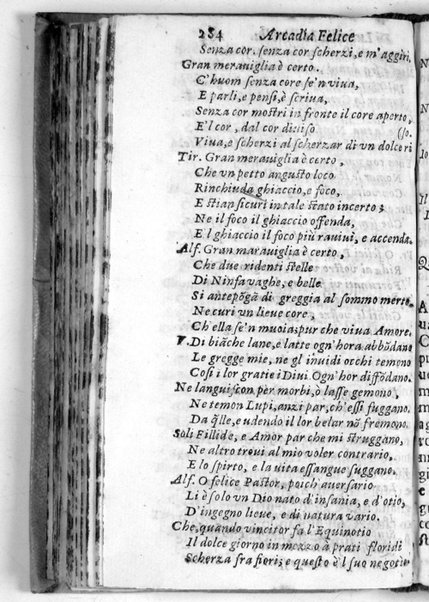 284 Arcadia Felice
Senza cor, senza cor scherzi, e m'aggiri.
Gran merauiglia è certo.
C'huom senza core se'n viua,
E parli, e pensi, è scriua,
Senza cor mostri in fronte il core aperto,
E'l cor, dal cor diuiso (so.
Viua, e scherzi al scherzar di vn dolce ri
Tir. Gran merauiglia è certo,
Che vn petto angusto loco
Rinchiuda ghiaccio, e foco,
E stian sicuri in tale stato incerto;
Ne il foco il ghiaccio offenda,
E l ghiaccio il foco più rauiui, e accenda.
Alf. Gran marauiglia è certo,
Che due ridenti stelle
Di Ninfa vaghe, e belle
Si antepõgã di greggia al sommo merto
Ne curi vn lieue core,
Ch'ella se'n muoia; pur che viua Amore.
V. Di biãche lane, e latte ogn'hora abbõdano
Le gregge mie, ne gl inuidi occhi temeno
Cosi i lor gratie i Diui Ogn'hor diffõdano.
Ne languiscon per morbi, ò lasse gemono,
Ne temon Lupi, anzi par, ch'essi fuggano.
Da q̃lle, e udendo il lor belar nõ fremono.
Soli Fillide, e Amor par che mi struggano,
Ne altro troui al mio voler contrario,
E lo spirto, e la uita essangue suggano.
Alf. O felice Pastor, poich auersario
Li è solo vn Dio nato d'insania, e d'otio,
D'ingegno lieue, e di natura vario.
Che, quando vincitor fa l'Equinotio
Il dolce giorno in mezzo à prati floridi
Scherza fra fiori; e questo è l suo negotio